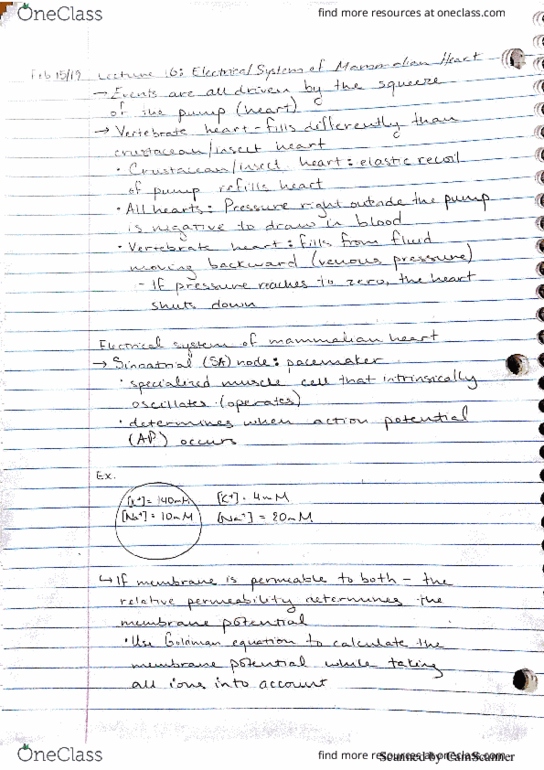 OneClass
find more resources at oneclass.com
Feb 15/19 Lecture 16: Electrical System of Mammalian Heart
→ Events are all driven by the squeeze
of the pump (heart)
→ Vertebrate heart - fills differently than
crustacean/insect heart
• Crustacean/insect heart: elastic recoil
of pump refills heart
• All hearts: Pressure right outside the pump
is negative to draw in blood
• Vertebrate heart: fills from fluid
moving backward (venous pressure)
- If pressure reaches to zero, the heart
shuts down
Electrical system of mammalian heart
→ Sinoatrial (SA) node: pacemaker
• specialized muscle cell that intrinsically
oscillates (operates)
• determines when action potential
(AP) occurs
Ex.
[K+] = 140mM [K+] = 4mM
[Na+] = 10mM [Na+] = 20mM
↳ If membrane is permeable to both - the
relative permeability determines the
membrane potential
• Use Goldman equation to calculate the
membrane potential while taking
all ions into account
OneClass
find more resources at oneclass.com
Scanned by CamScanner